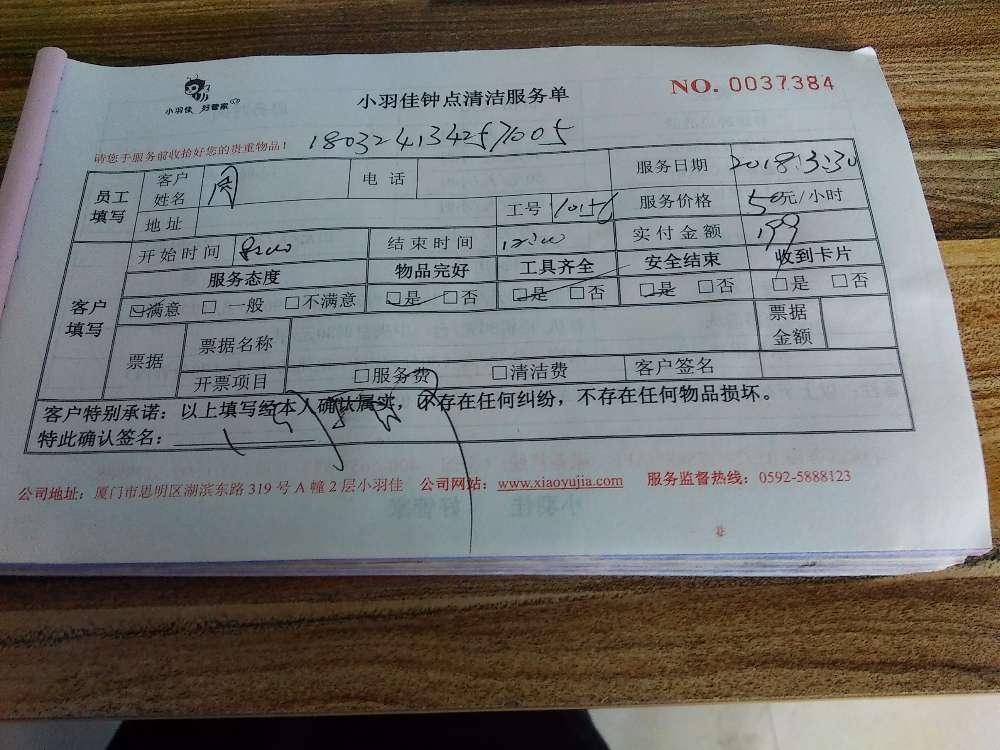 小羽佳 好管家
小羽佳钟点清洁服务单
NO. 0037384
请您于服务前收拾好您的贵重物品！ 180324134257005
员工填写 客户姓名 周 电话 服务日期 2018.3.30
地址 工号 服务价格 50元/小时
客户填写 开始时间 结束时间 实付金额 199
服务态度 物品完好 工具齐全 安全结束 收到卡片
☑满意 □一般 □不满意 ☑是 □否 ☑是 □否 ☑是 □否 □是 □否
票据 票据名称 票据金额
开票项目 □服务费 □清洁费 客户签名
客户特别承诺：以上填写经本人确认属实，不存在任何纠纷，不存在任何物品损坏。
特此确认签名：
公司地址：厦门市思明区湖滨东路 319 号 A 幢 2 层小羽佳 公司网站：www.xiaoyujia.com 服务监督热线：0592-5888123